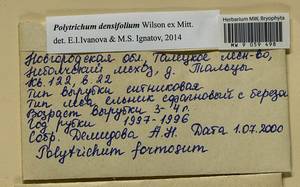 Polytrichum densifolium Wilson ex Mitt.
det. E.I.Ivanova & M.S. Ignatov, 2014
Herbarium MW, Bryophyta
MW 9 059 498
Новгородская обл.
д. Тальцы
Кв. 122 в. 22
Тип вырубки ситниковая
Тип леса ельник сфагновый с березой
Возраст вырубки 3-4 г.
Год рубки 1997-1996
Собр. Демидова А.Н. Дата 1.07.2000
Polytrichum formosum